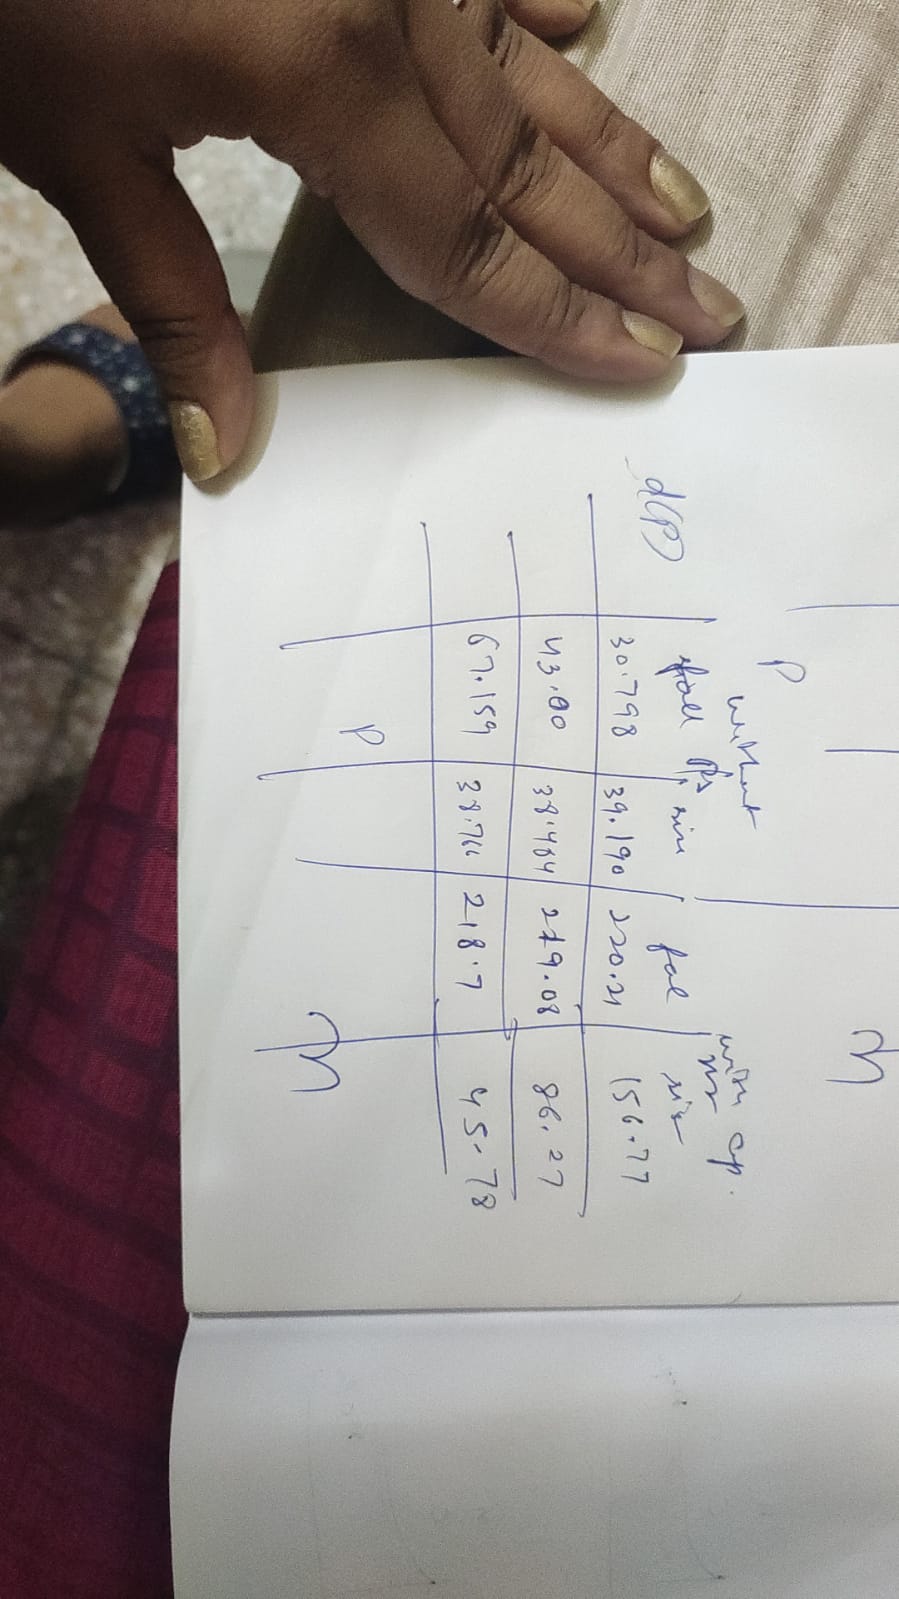 m
P
without
d(P) fall rise fal rise
with cp.
30.798 39.190 220.21 156.77
43.00 38.464 219.08 86.27
67.159 38.766 218.7 45.78
P m